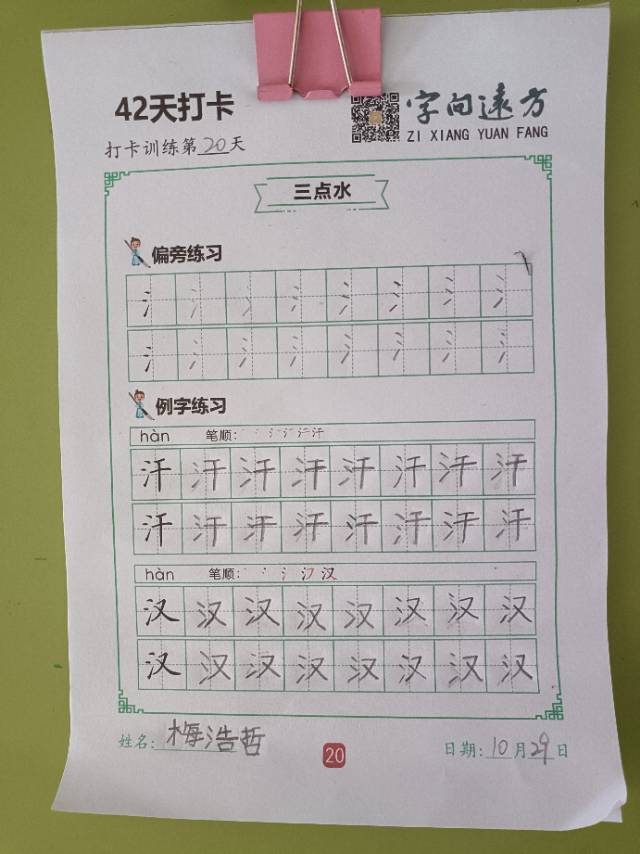 42天打卡
字间远方
ZI XIANG YUAN FANG
打卡训练第20天
三点水
偏旁练习
氵氵氵氵氵氵氵氵
氵氵氵氵氵氵氵氵
例字练习
hàn 笔顺:
汗汗汗汗汗汗汗汗
汗汗汗汗汗汗汗汗
hàn 笔顺:
汉汉汉汉汉汉汉汉
汉汉汉汉汉汉汉汉
姓名:梅浩哲
20
日期:10月29日